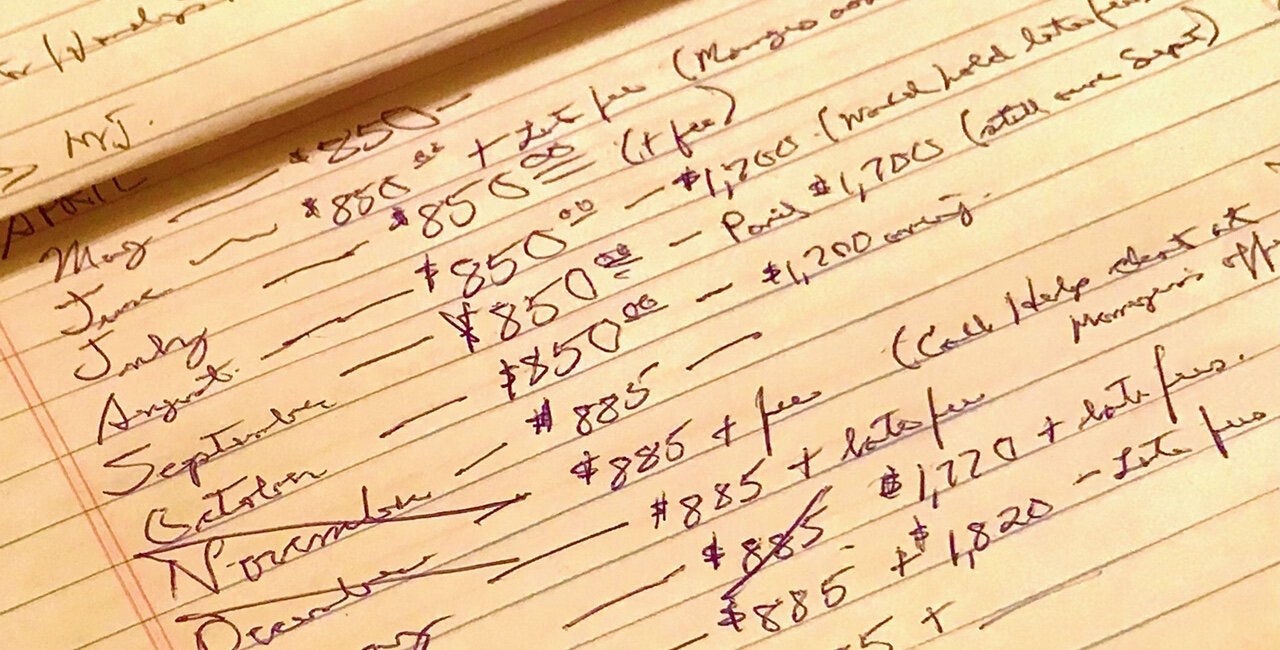 > NYJ.
APRIL — $850 —
May — $850.00 + Late fee (Manger's
June — $850.00 (+ fee)
July — $850.00 — $1,700 (Would hold late fees
August. — $850.00 — Paid $1,700 (still owe Sept)
September — $850.00 — $1,200 owing.
October — $885 —
November — $885 + fees (Call Help desk at Manger's
December — $885 + late fees
$885 $1,770 + late fees.
$885 + $1,820 - Late fees
5 +